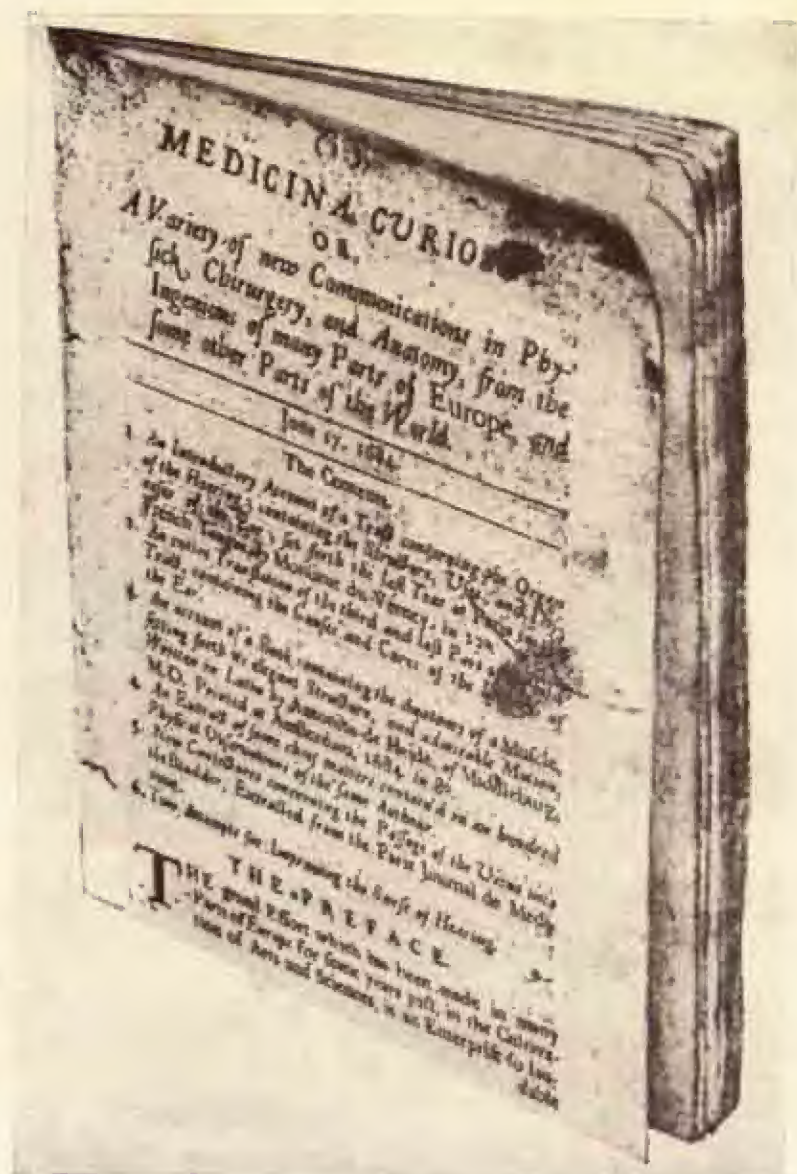 (1)
MEDICINA CURIOS
OR,
A Variety of new Communications in Phy-
sick, Chirurgery, and Anatomy, from the
Ingenious of many Parts of Europe, and
some other Parts of the World.
June 17. 1684.
The Contents.
1. An Introductory Account of a Tract concerning the Organ
of the Hearing; containing the Structure, Uses, and
of the Ear; set forth the last Year at Paris in
French by Monsieur du Verney, in
2. An entire Translation of the third and last Part
Tract, containing the Causes and Cures of the of
the Ear.
3. An account of a Book containing the Anatomy of a Muscle,
setting forth its elegant Structure, and admirable Motion,
Written in Latin by Antonius de Heyde, of Middleburg,
M.D. Printed at Amsterdam, 1684. in 8º.
4. An Extract of some chief matters contain'd in an hundred
Physical Observations of the same Author.
5. New Conjectures concerning the Passage of the Urine into
the Bladder, Extracted from the Paris Journal de Mede
6. Two Attempts for Improving the Sense of Hearing.
THE PREFACE.
THE grand Effort which has been made in many
Parts of Europe for some years past, in the Cultiva-
tion of Arts and Sciences, is an Enterprise so lau-
dable